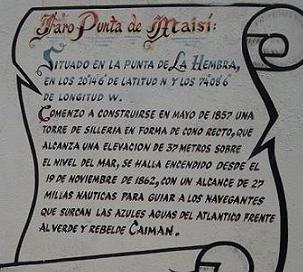 Faro Punta de Maisí:
SITUADO EN LA PUNTA DE LA HEMBRA,
EN LOS 20°14'6" DE LATITUD N Y LOS 74°08'6"
DE LONGITUD W.
COMENZO A CONSTRUIRSE EN MAYO DE 1857 UNA
TORRE DE SILLERIA EN FORMA DE CONO RECTO, QUE
ALCANZA UNA ELEVACION DE 37 METROS SOBRE
EL NIVEL DEL MAR, SE HALLA ENCENDIDO DESDE EL
19 DE NOVIEMBRE DE 1862, CON UN ALCANCE DE 27
MILLAS NAUTICAS PARA GUIAR A LOS NAVEGANTES
QUE SURCAN LAS AZULES AGUAS DEL ATLANTICO FRENTE
AL VERDE Y REBELDE CAIMAN.